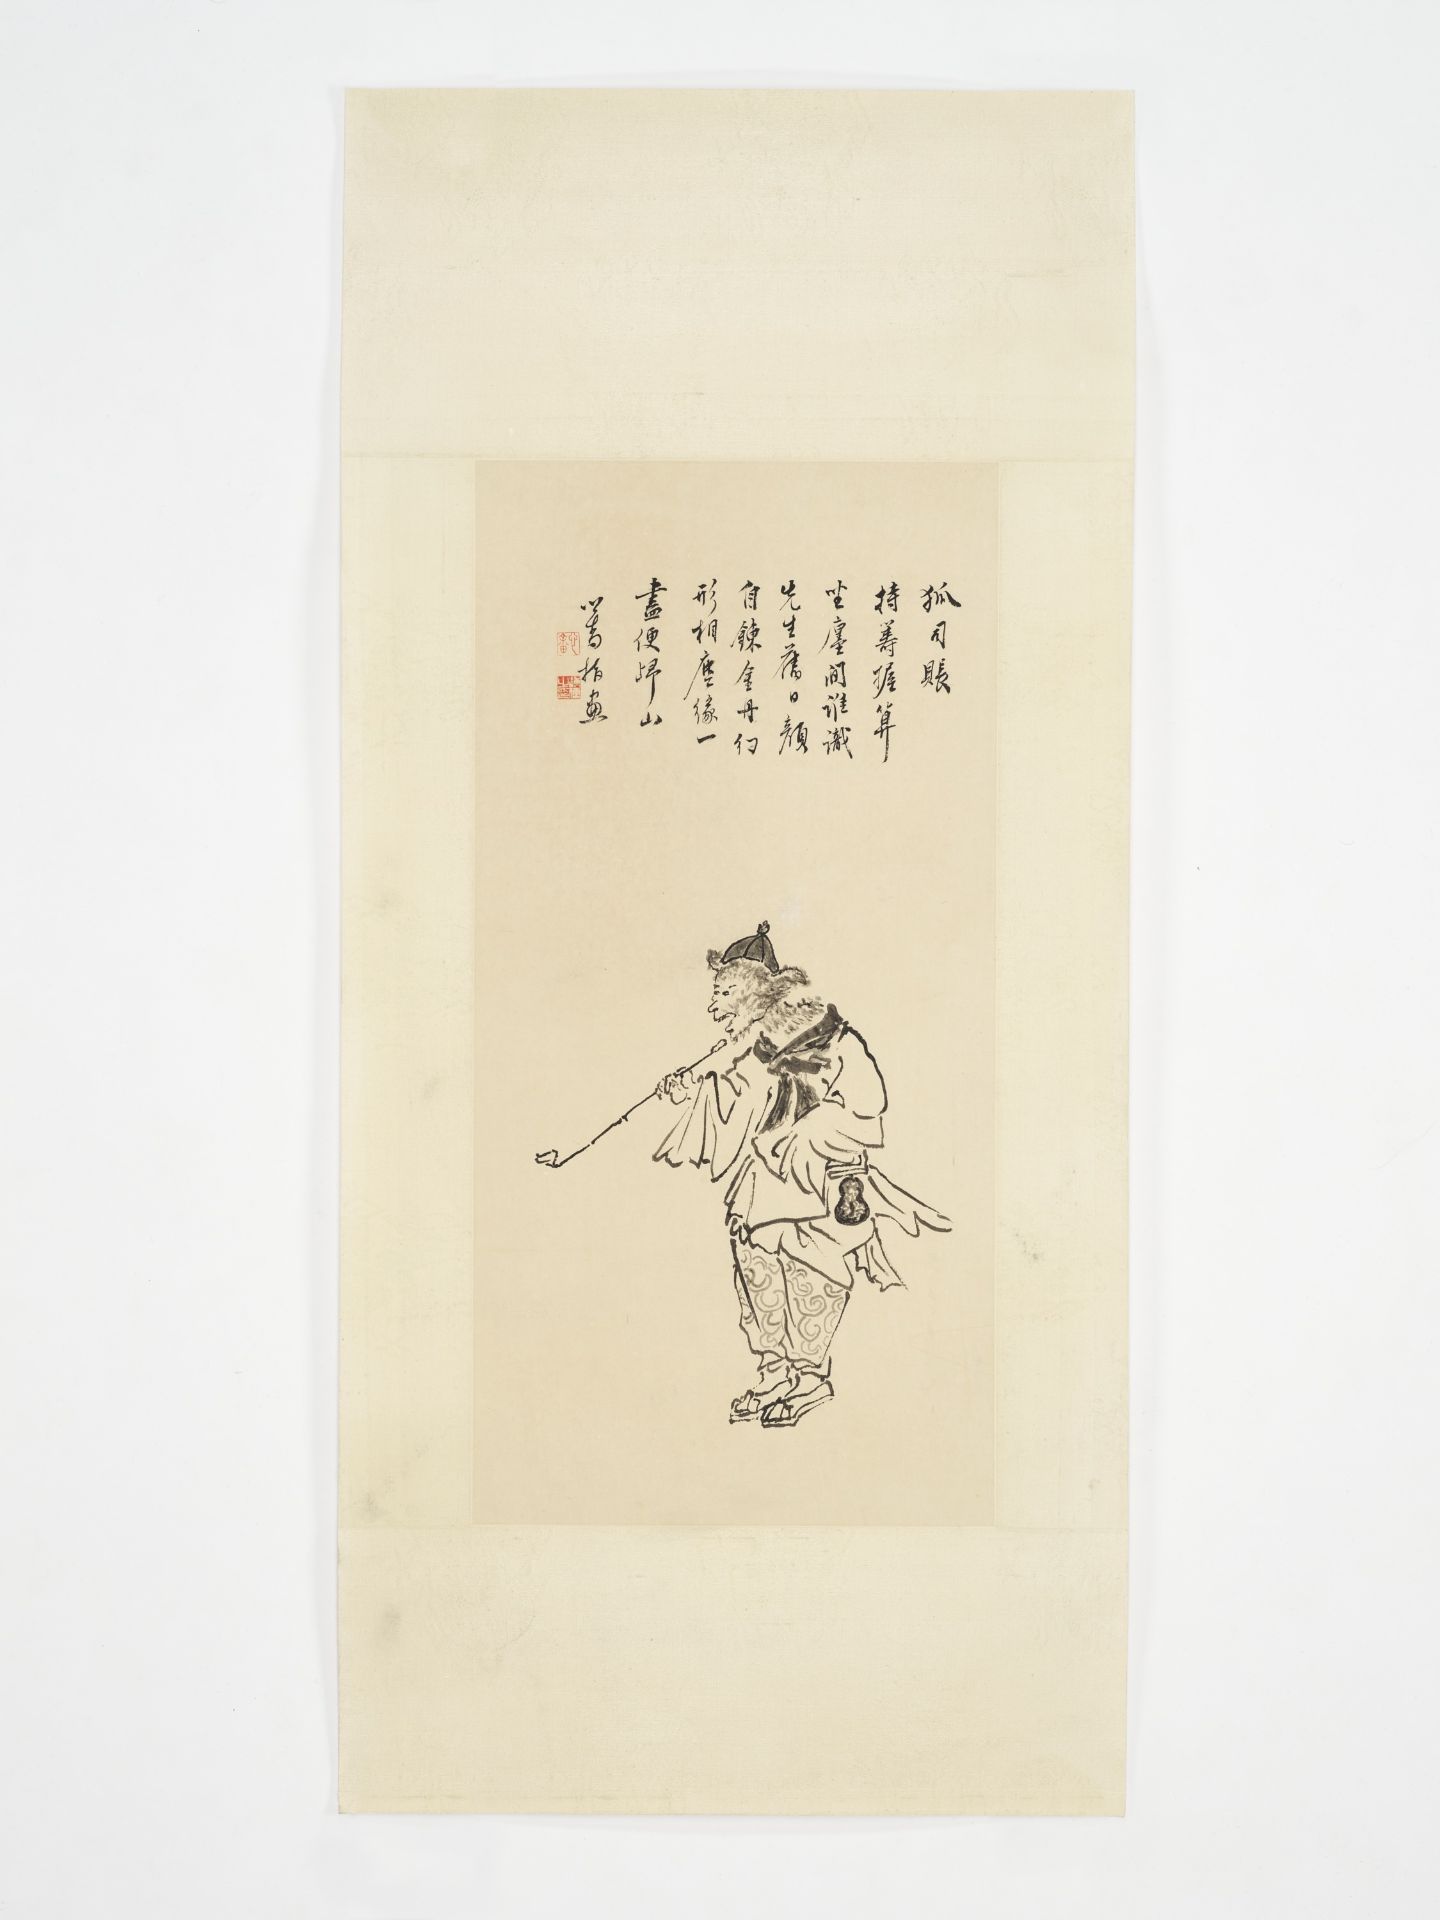 狐司賬
持籌握算
坐廛間誰識
先生舊日顏
自鍊金丹幻
形相塵緣一
盡便歸山
心畬指畫